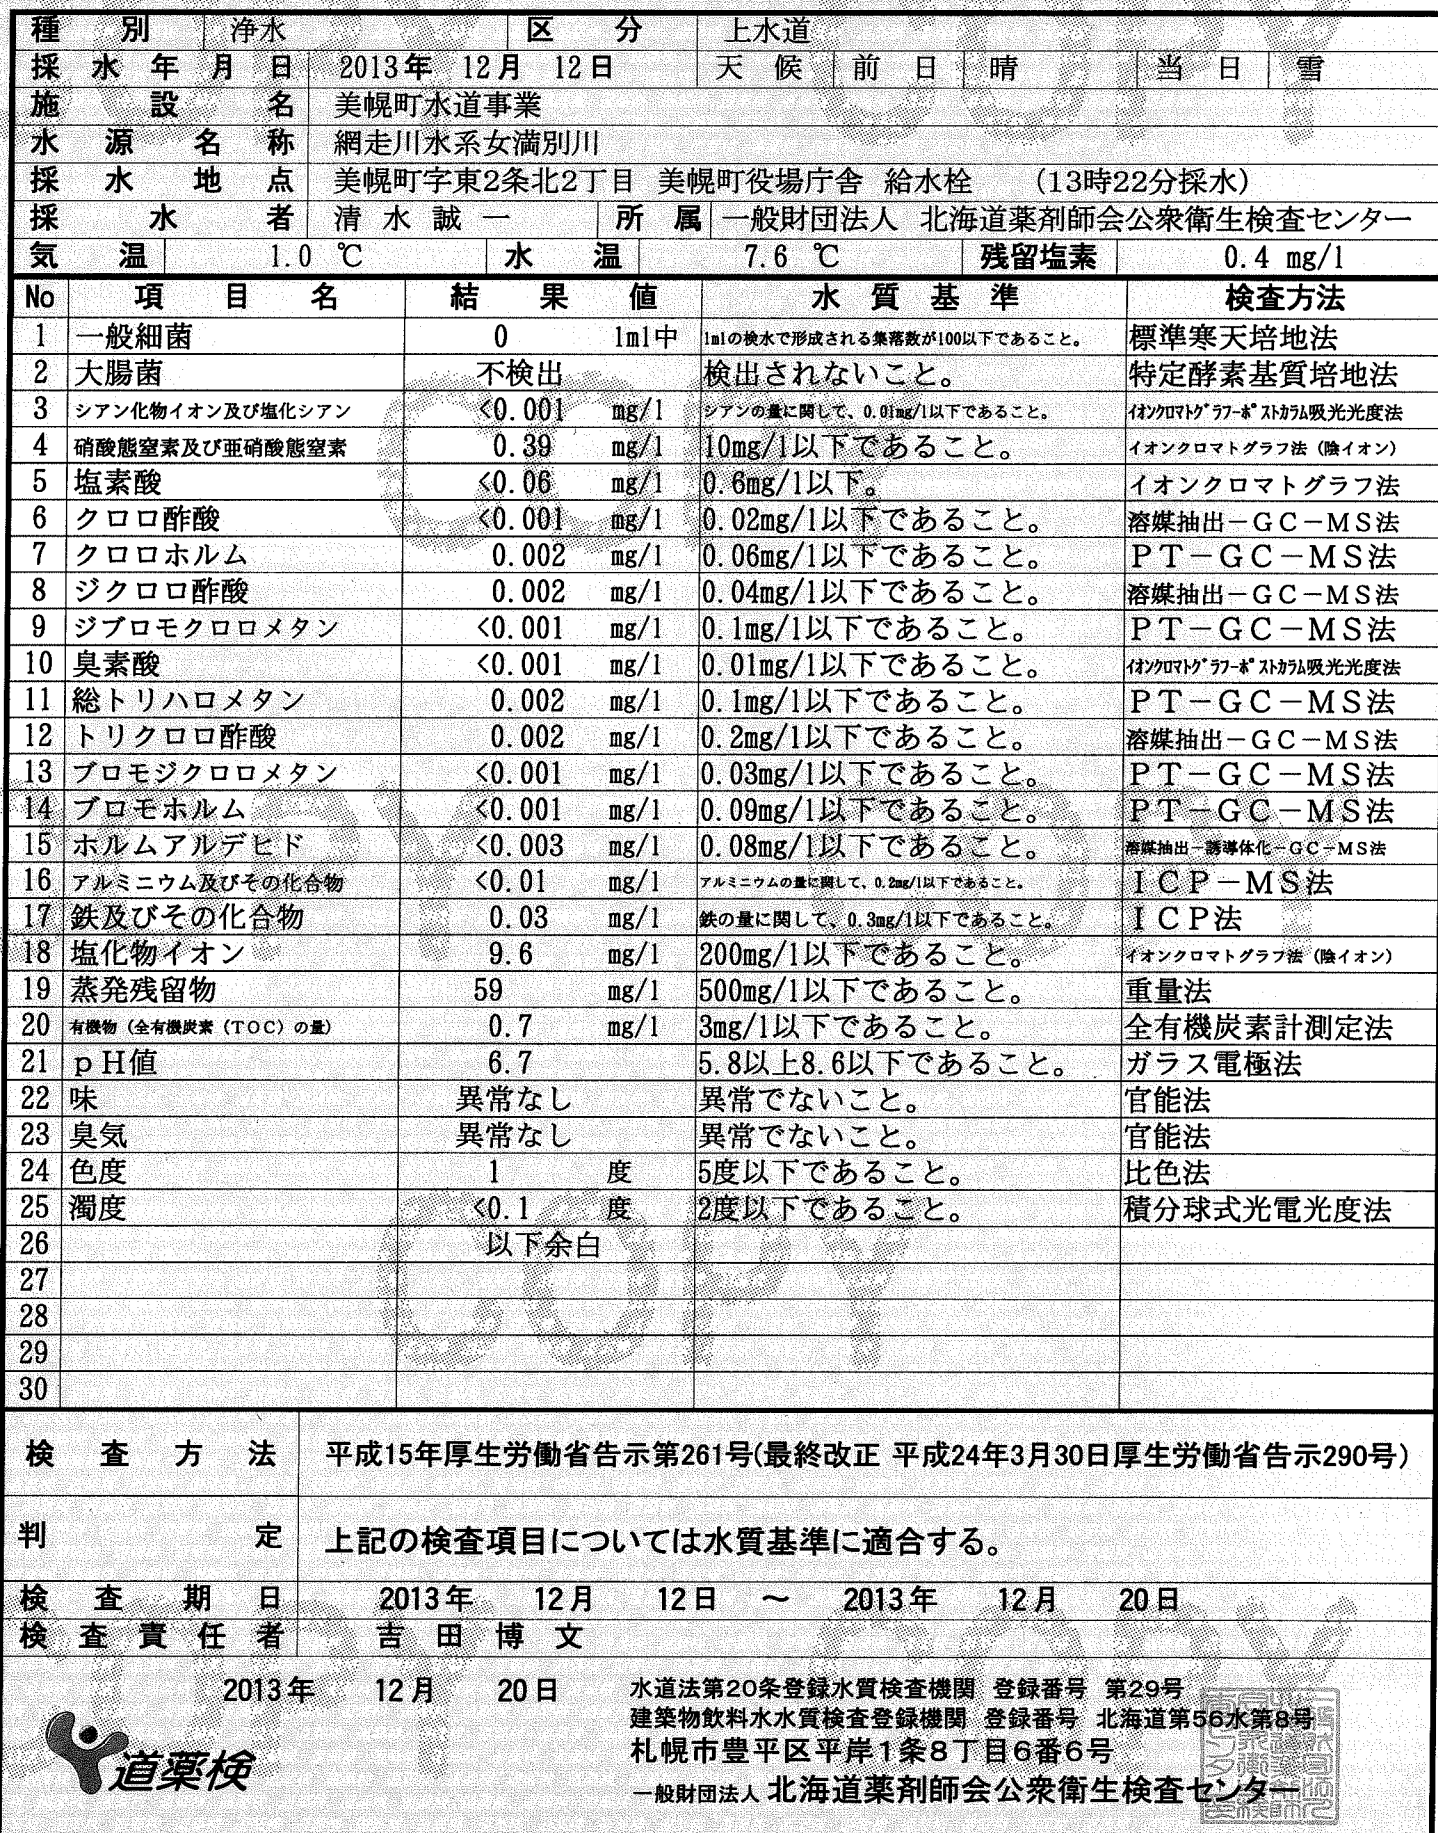 種別 浄水 区分 上水道
採水年月日 2013年 12月 12日 天候 前日 晴 当日 雪
施設名 美幌町水道事業
水源名称 網走川水系女満別川
採水地点 美幌町字東2条北2丁目 美幌町役場庁舎 給水栓 (13時22分採水)
採水者 清水誠一 所属 一般財団法人 北海道薬剤師会公衆衛生検査センター
気温 1.0 ℃ 水温 7.6 ℃ 残留塩素 0.4 mg/l
No 項目名 結果値 水質基準 検査方法
1 一般細菌 0 1ml中 1mlの検水で形成される集落数が100以下であること。 標準寒天培地法
2 大腸菌 不検出 検出されないこと。 特定酵素基質培地法
3 シアン化物イオン及び塩化シアン <0.001 mg/l シアンの量に関して、0.01mg/l以下であること。 ｲｵﾝｸﾛﾏﾄｸﾞﾗﾌ-ﾎﾟｽﾄｶﾗﾑ吸光光度法
4 硝酸態窒素及び亜硝酸態窒素 0.39 mg/l 10mg/l以下であること。 イオンクロマトグラフ法（陰イオン）
5 塩素酸 <0.06 mg/l 0.6mg/l以下。 イオンクロマトグラフ法
6 クロロ酢酸 <0.001 mg/l 0.02mg/l以下であること。 溶媒抽出－ＧＣ－ＭＳ法
7 クロロホルム 0.002 mg/l 0.06mg/l以下であること。 ＰＴ－ＧＣ－ＭＳ法
8 ジクロロ酢酸 0.002 mg/l 0.04mg/l以下であること。 溶媒抽出－ＧＣ－ＭＳ法
9 ジブロモクロロメタン <0.001 mg/l 0.1mg/l以下であること。 ＰＴ－ＧＣ－ＭＳ法
10 臭素酸 <0.001 mg/l 0.01mg/l以下であること。 ｲｵﾝｸﾛﾏﾄｸﾞﾗﾌ-ﾎﾟｽﾄｶﾗﾑ吸光光度法
11 総トリハロメタン 0.002 mg/l 0.1mg/l以下であること。 ＰＴ－ＧＣ－ＭＳ法
12 トリクロロ酢酸 0.002 mg/l 0.2mg/l以下であること。 溶媒抽出－ＧＣ－ＭＳ法
13 ブロモジクロロメタン <0.001 mg/l 0.03mg/l以下であること。 ＰＴ－ＧＣ－ＭＳ法
14 ブロモホルム <0.001 mg/l 0.09mg/l以下であること。 ＰＴ－ＧＣ－ＭＳ法
15 ホルムアルデヒド <0.003 mg/l 0.08mg/l以下であること。 溶媒抽出－誘導体化－ＧＣ－ＭＳ法
16 アルミニウム及びその化合物 <0.01 mg/l アルミニウムの量に関して、0.2mg/l以下であること。 ＩＣＰ－ＭＳ法
17 鉄及びその化合物 0.03 mg/l 鉄の量に関して、0.3mg/l以下であること。 ＩＣＰ法
18 塩化物イオン 9.6 mg/l 200mg/l以下であること。 イオンクロマトグラフ法（陰イオン）
19 蒸発残留物 59 mg/l 500mg/l以下であること。 重量法
20 有機物（全有機炭素（ＴＯＣ）の量） 0.7 mg/l 3mg/l以下であること。 全有機炭素計測定法
21 ｐＨ値 6.7 5.8以上8.6以下であること。 ガラス電極法
22 味 異常なし 異常でないこと。 官能法
23 臭気 異常なし 異常でないこと。 官能法
24 色度 1 度 5度以下であること。 比色法
25 濁度 <0.1 度 2度以下であること。 積分球式光電光度法
26 以下余白
27
28
29
30
検査方法 平成15年厚生労働省告示第261号(最終改正 平成24年3月30日厚生労働省告示290号)
判定 上記の検査項目については水質基準に適合する。
検査期日 2013年 12月 12日 ～ 2013年 12月 20日
検査責任者 吉田博文
2013年 12月 20日
水道法第20条登録水質検査機関 登録番号 第29号
建築物飲料水水質検査登録機関 登録番号 北海道第56水第8号
札幌市豊平区平岸1条8丁目6番6号
一般財団法人 北海道薬剤師会公衆衛生検査センター
道薬検
COPY